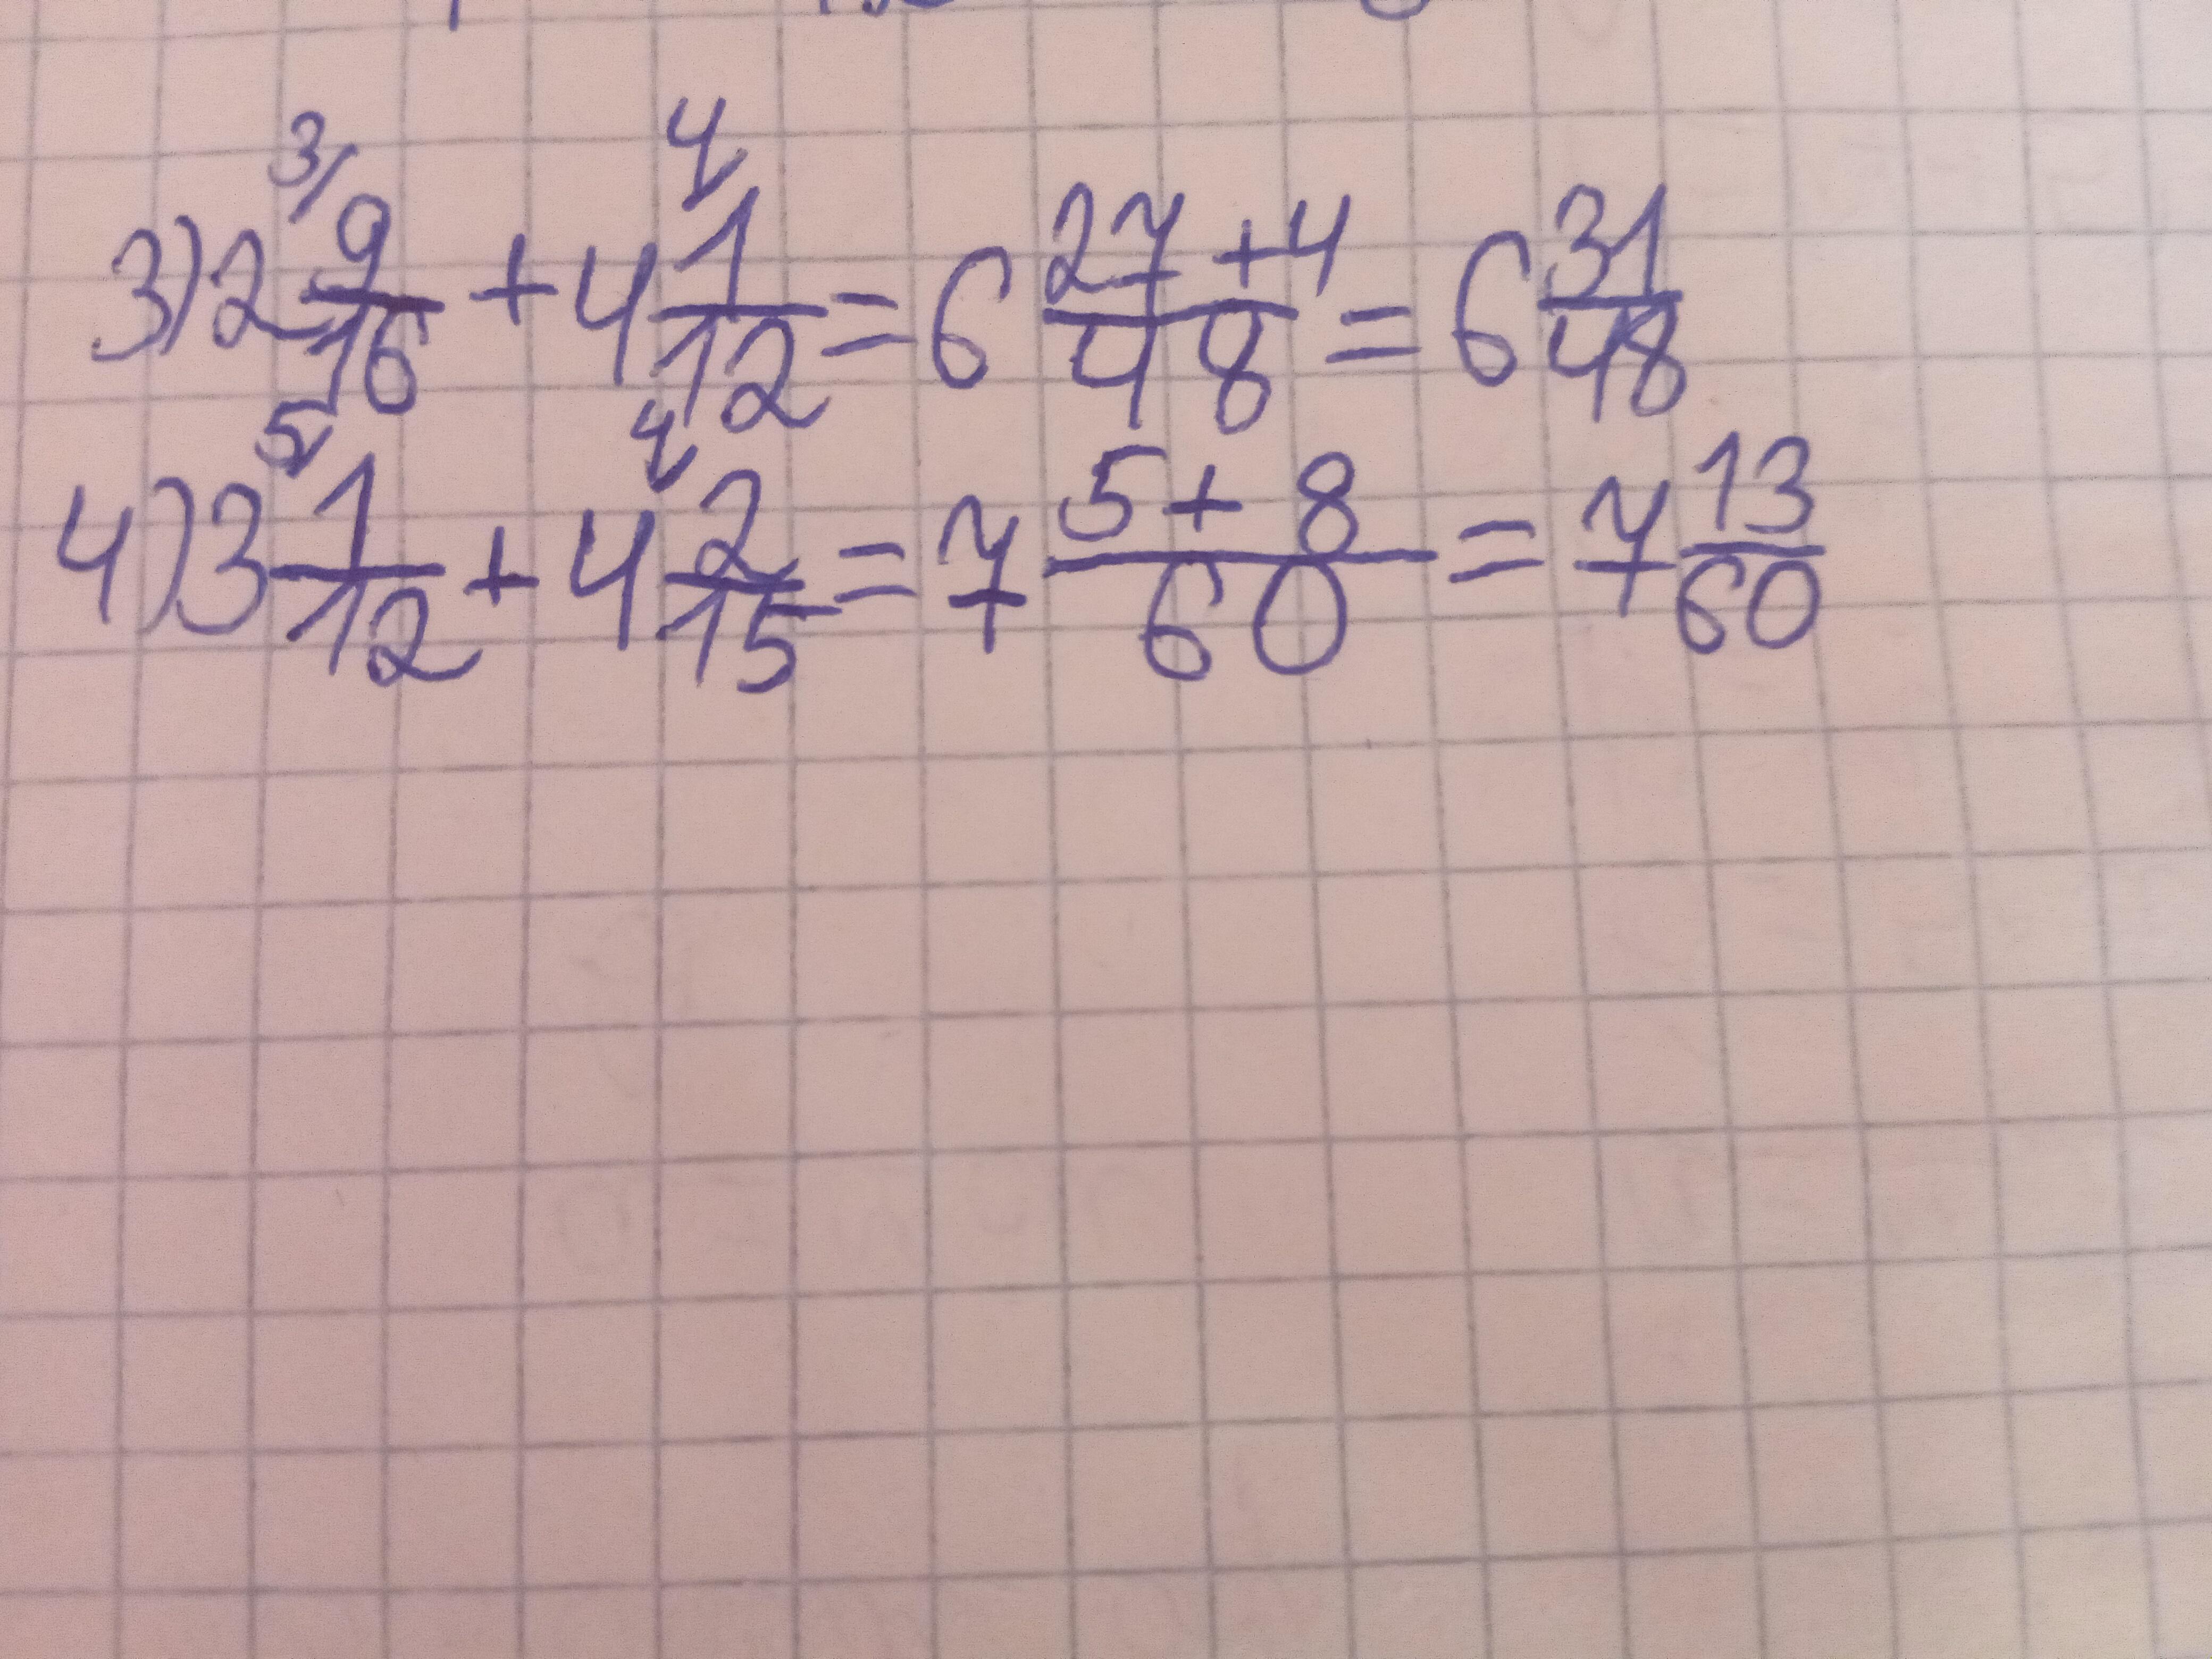 3) 2 3/ 9/16 + 4 4/ 1/12 = 6 27+4/48 = 6 31/48
4) 3 5/ 1/12 + 4 4/ 2/15 = 7 5+8/60 = 7 13/60